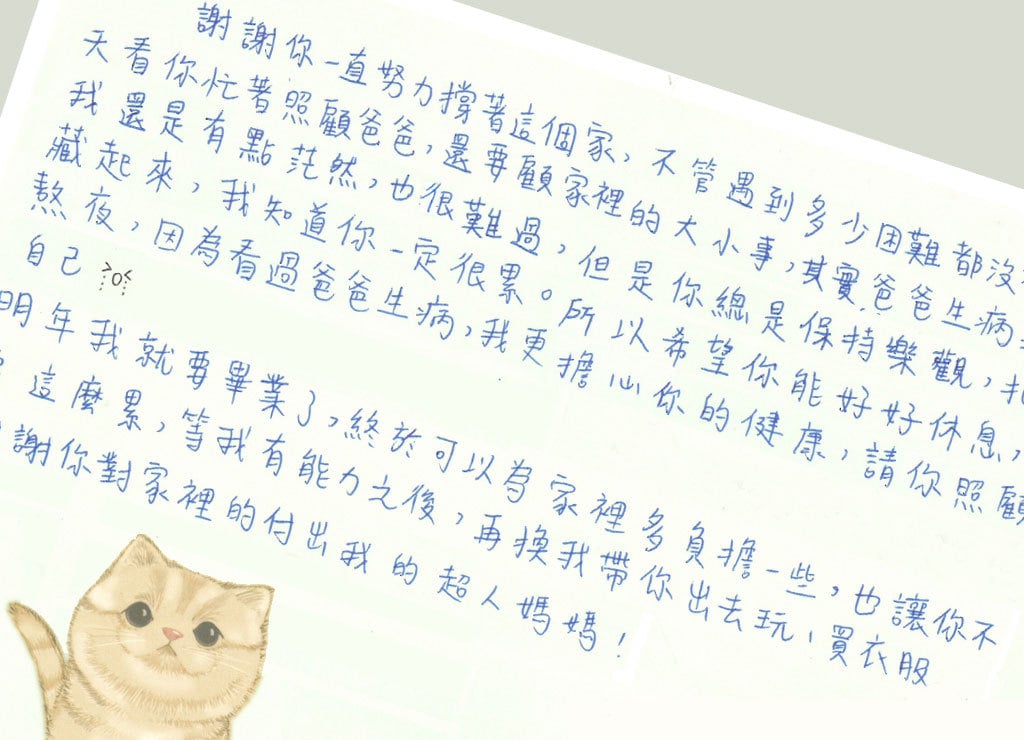 謝謝你一直努力撐著這個家，不管遇到多少困難都沒
天看你忙著照顧爸爸，還要顧家裡的大小事，其實爸爸生病
我還是有點茫然，也很難過，但是你總是保持樂觀，
藏起來，我知道你一定很累。所以希望你能好好休息，
熬夜，因為看過爸爸生病，我更擔心你的健康，請你照顧
自己
明年我就要畢業了，終於可以為家裡多負擔一些，也讓你不
這麼累，等我有能力之後，再換我帶你出去玩、買衣服
謝你對家裡的付出我的超人媽媽！